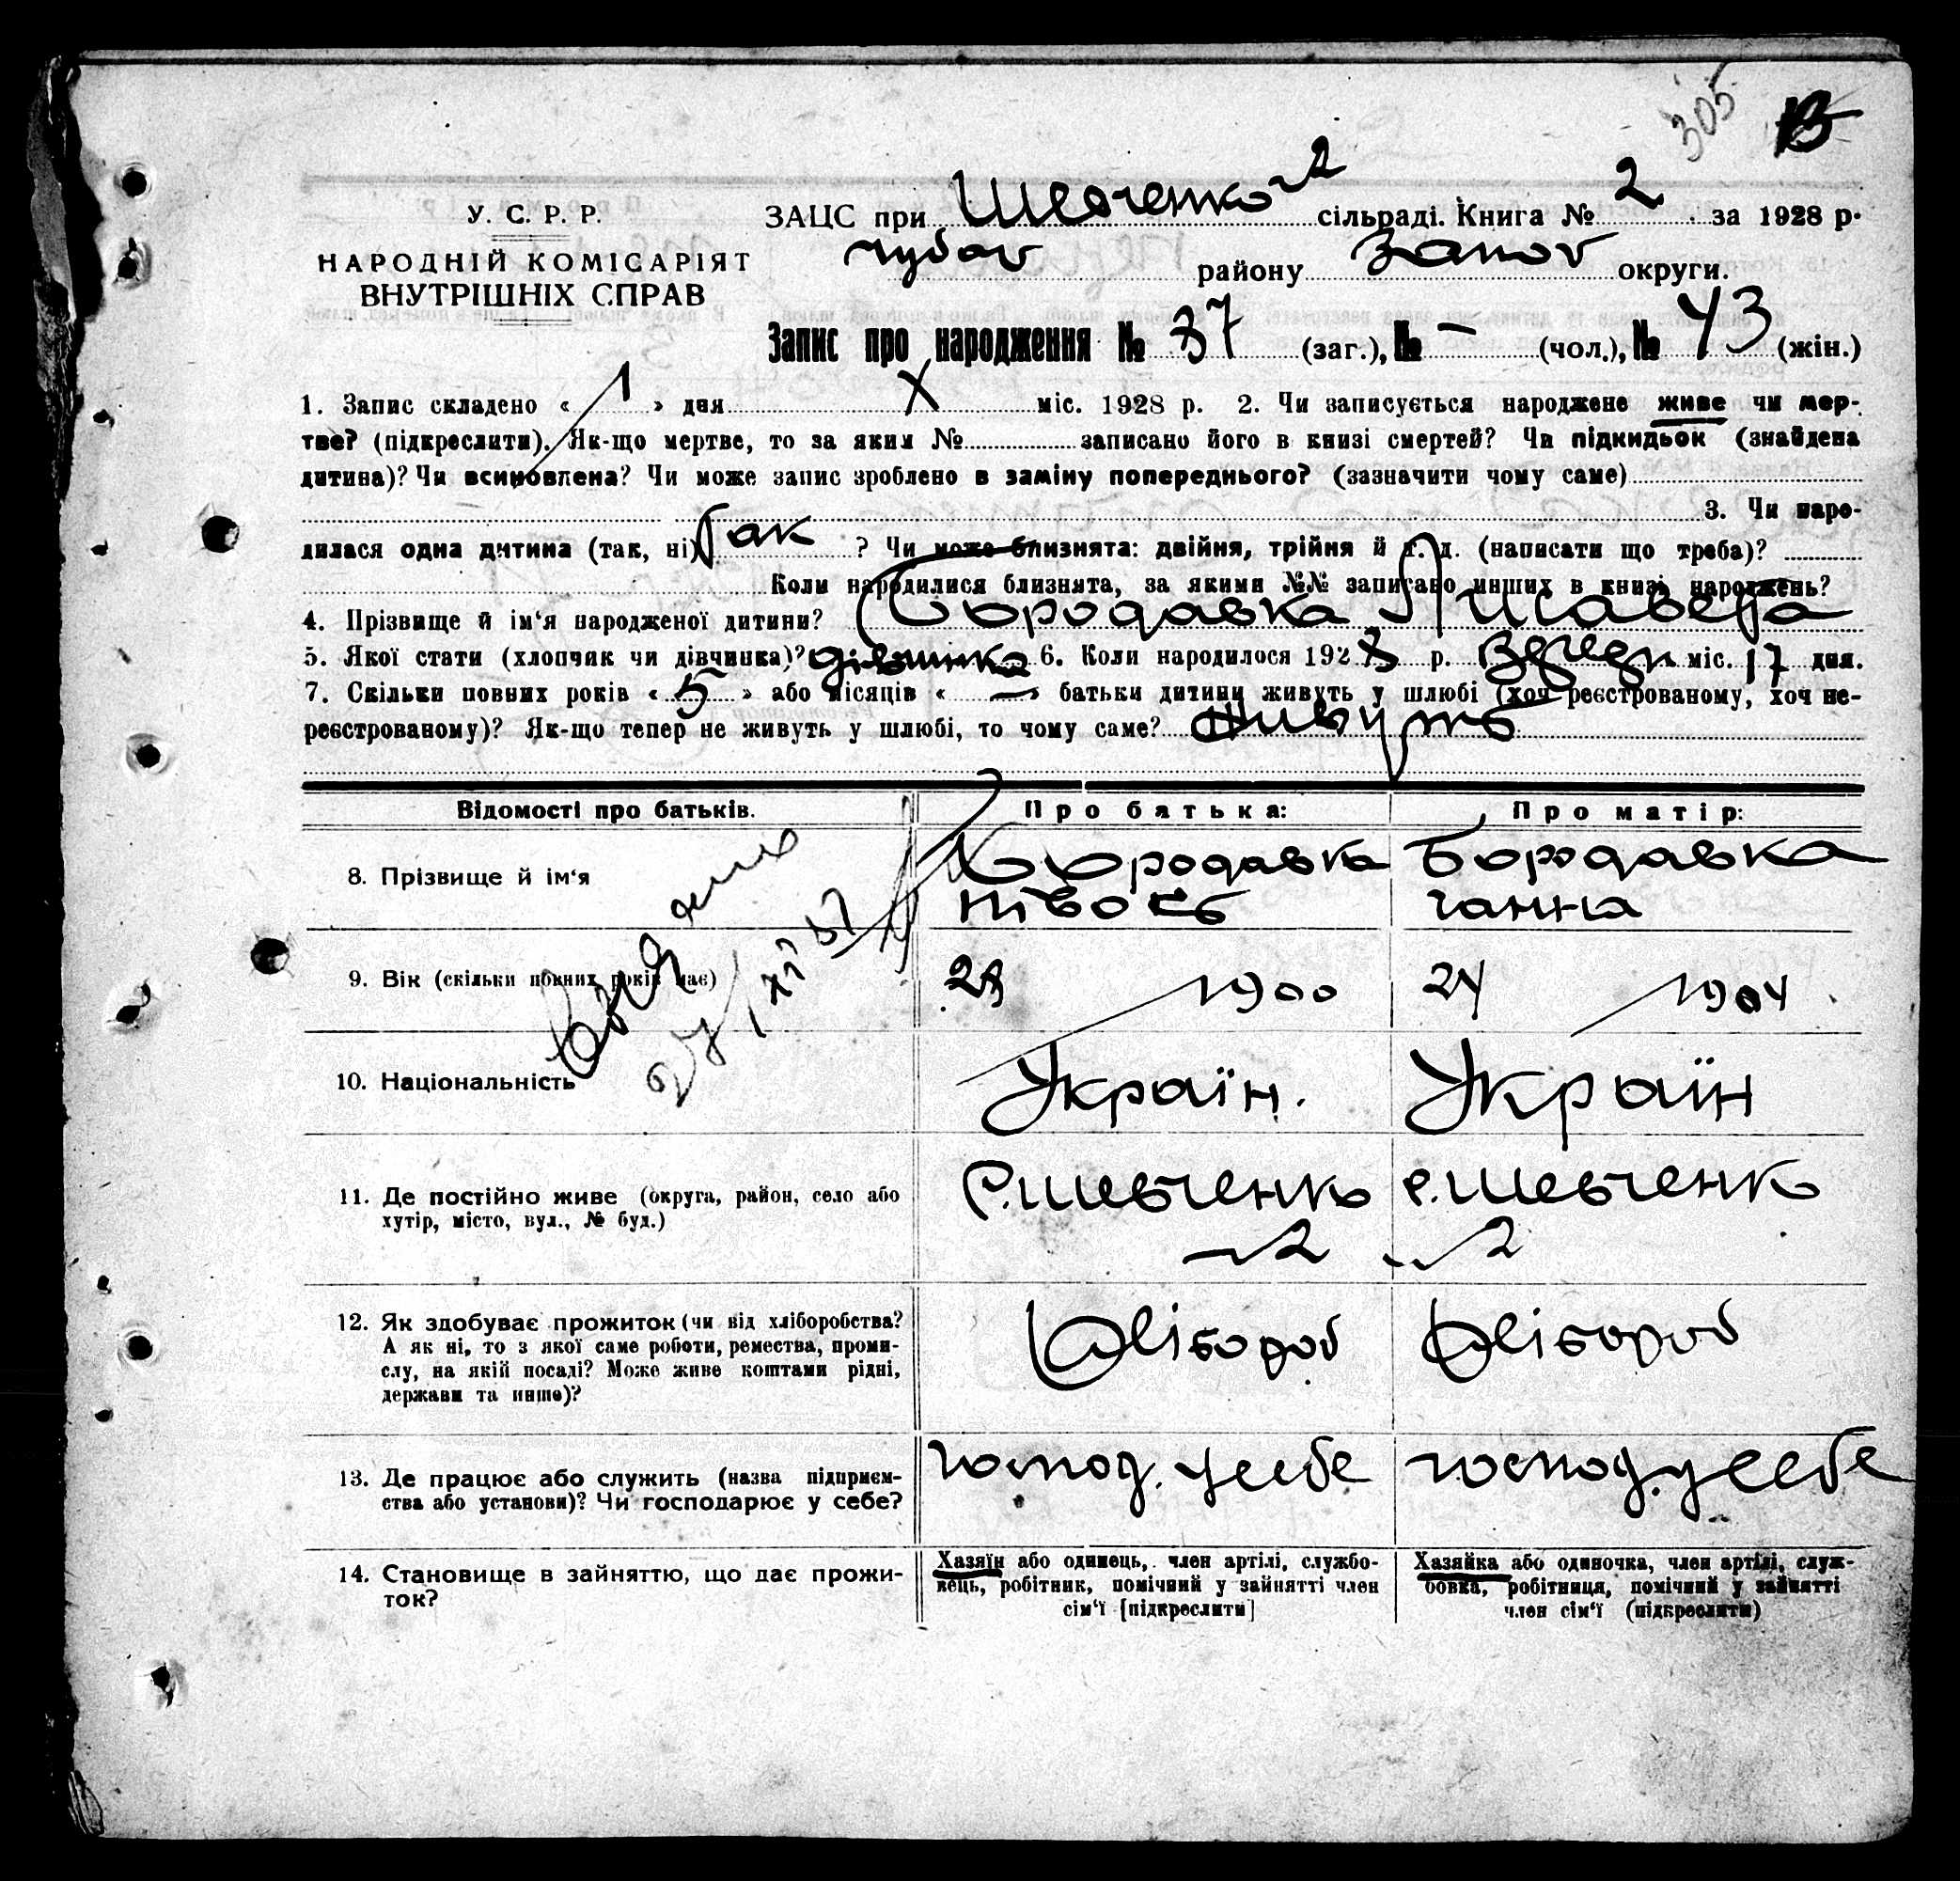 305
У. С. Р. Р.
НАРОДНІЙ КОМІСАРІЯТ
ВНУТРІШНІХ СПРАВ
ЗАЦС при Шевченко 2 сільраді. Книга № 2 за 1928 р.
чубар району Запор округи.
Запис про народження № 37 (заг.), № — (чол.), № 43 (жін.)
1. Запис складено « 1 » дня X міс. 1928 р. 2. Чи записується народжене живе чи мер-
тве? (підкреслити). Як-що мертве, то за яким № записано його в книзі смертей? Чи підкидьок (знайдена
дитина)? Чи всиновлена? Чи може запис зроблено в заміну попереднього? (зазначити чому саме)
3. Чи наро-
дилася одна дитина (так, ні) Так ? Чи може близнята: двійня, трійня й т. д. (написати що треба)?
Коли народилися близнята, за якими №№ записано инших в книзі народжень?
4. Прізвище й ім‘я народженої дитини? Бородавка Лисавета
5. Якої стати (хлопчик чи дівчинка)? дівчинка 6. Коли народилося 1928 р. міс. 17 дня.
7. Скільки повних років « 5 » або місяців « — » батьки дитини живуть у шлюбі (хоч реєстрованому, хоч не-
реєстрованому)? Як-що тепер не живуть у шлюбі, то чому саме? живуть
Відомості про батьків.
Про батька:
Про матір:
8. Прізвище й ім‘я
Бородавка
Бородавка
ганна
9. Вік (скільки повних років має)
28 1900
24 1904
10. Національність
Україн.
Україн
11. Де постійно живе (округа, район, село або
хутір, місто, вул., № буд.)
с. Шевченко
2
с. Шевченко
2
12. Як здобуває прожиток (чи від хліборобства?
А як ні, то з якої саме роботи, ремества, проми-
слу, на якій посаді? Може живе коштами рідні,
держави та инше)?
Хлібороб
Хлібороб
13. Де працює або служить (назва підприєм-
ства або установи)? Чи господарює у себе?
господ. у себе
господ. у себе
14. Становище в зайняттю, що дає прожи-
ток?
Хазяїн або одинець, член артілі, службо-
вець, робітник, помічний у зайнятті член
сім‘ї [підкреслити]
Хазяйка або одиночка, член артілі, служ-
бовка, робітниця, помічний у зайнятті
член сім‘ї (підкреслити)